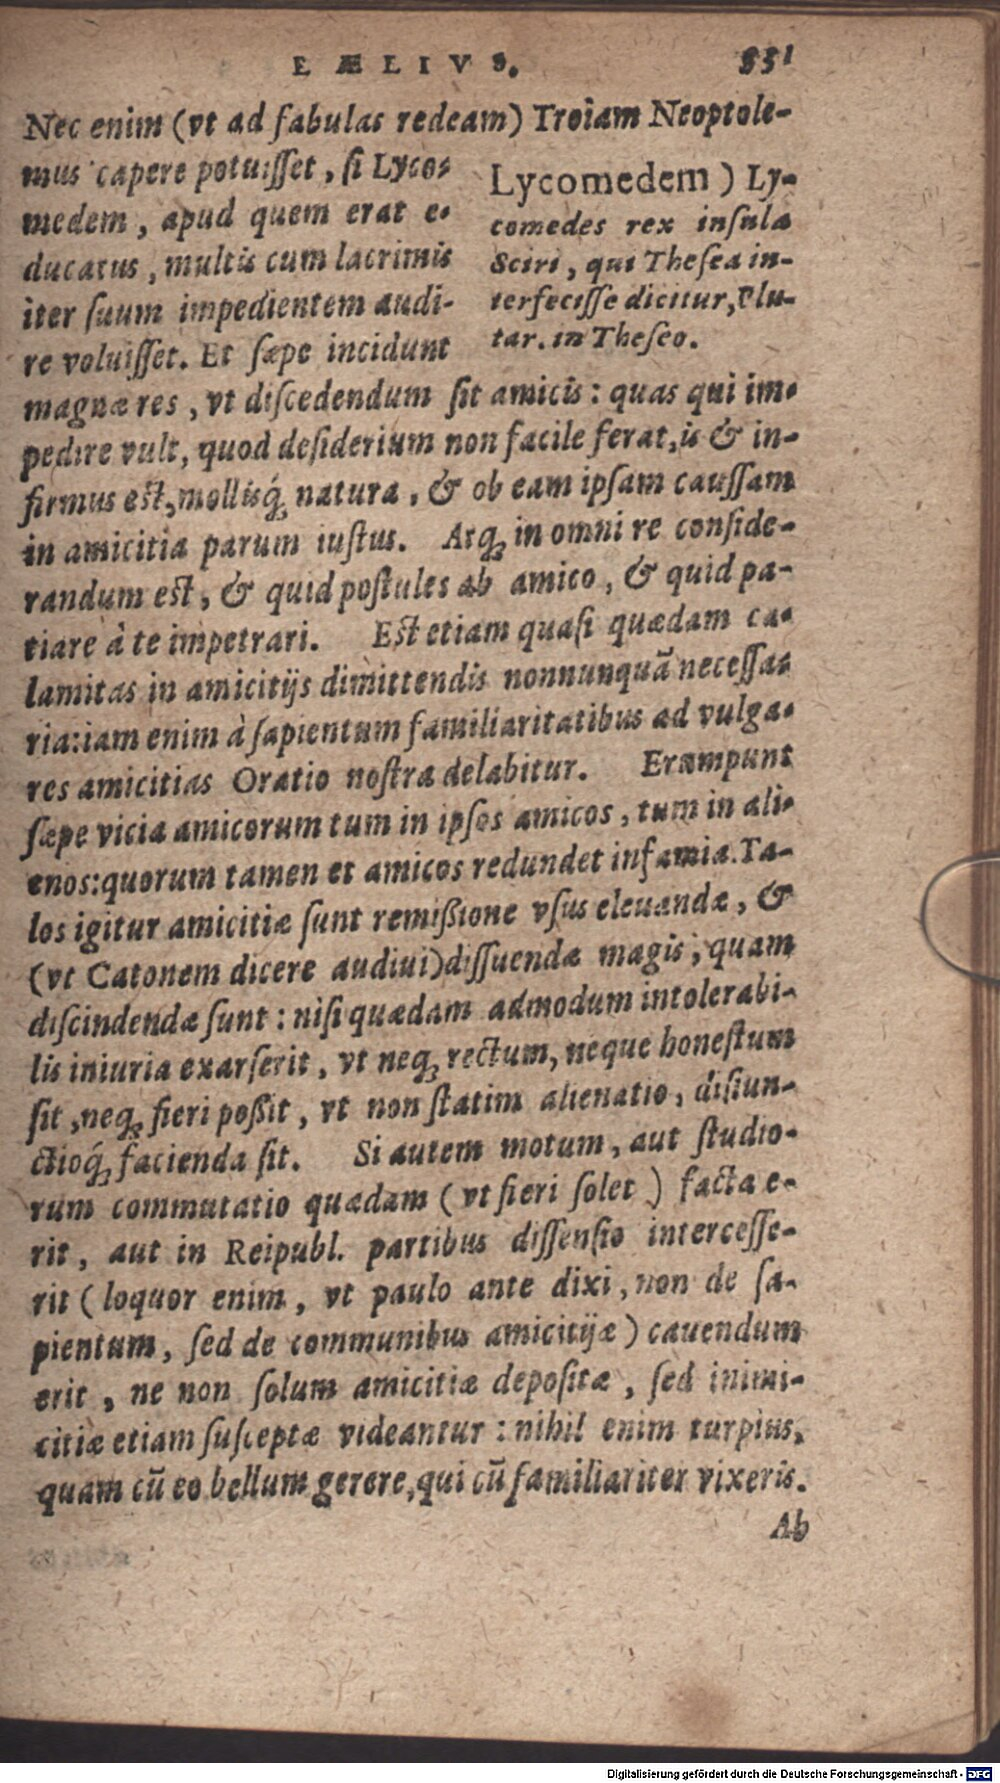 LÆLIVS. 351
Nec enim (vt ad fabulas redeam) Troiam Neoptole-
mus capere potuiſſet, ſi Lyco-
medem, apud quem erat e-
ducatus, multis cum lacrimis
iter ſuum impedientem audi-
re voluiſſet. Et ſæpe incidunt
Lycomedem) Ly-
comedes rex inſula
Sciri, qui Theſea in-
terfeciſſe dicitur, Plu-
tar. in Theſeo.
magnæ res, vt diſcedendum ſit amicis: quas qui im-
pedire vult, quod deſiderium non facile ferat, is & in-
firmus eſt, mollisq́; natura, & ob eam ipſam cauſſam
in amicitia parum iuſtus. Atq; in omni re conſide-
randum eſt, & quid poſtules ab amico, & quid pa-
tiare à te impetrari. Eſt etiam quaſi quædam ca-
lamitas in amicitijs dimittendis nonnunquā neceſſa-
ria: iam enim à ſapientum familiaritatibus ad vulga-
res amicitias Oratio noſtra delabitur. Erumpunt
ſæpe vicia amicorum tum in ipſos amicos, tum in ali-
enos: quorum tamen et amicos redundet infamia. Ta-
los igitur amicitiæ ſunt remißione vſus eleuandæ, &
(vt Catonem dicere audiui) diſſuendæ magis, quam
diſcindendæ ſunt: niſi quædam admodum intolerabi-
lis iniuria exarſerit, vt neq; rectum, neque honeſtum
ſit, neq; fieri poßit, vt non ſtatim alienatio, diſiun-
ctioq́; facienda ſit. Si autem motum, aut ſtudio-
rum commutatio quædam (vt fieri ſolet) facta e-
rit, aut in Reipubl. partibus diſſenſio interceſſe-
rit (loquor enim, vt paulo ante dixi, non de ſa-
pientum, ſed de communibus amicitijæ) cauendum
erit, ne non ſolum amicitiæ depoſitæ, ſed inimi-
citiæ etiam ſuſceptæ videantur: nihil enim turpius,
quam cū eo bellum gerere, qui cū familiariter vixeris.
Ab
Digitalisierung gefördert durch die Deutsche Forschungsgemeinschaft - DFG